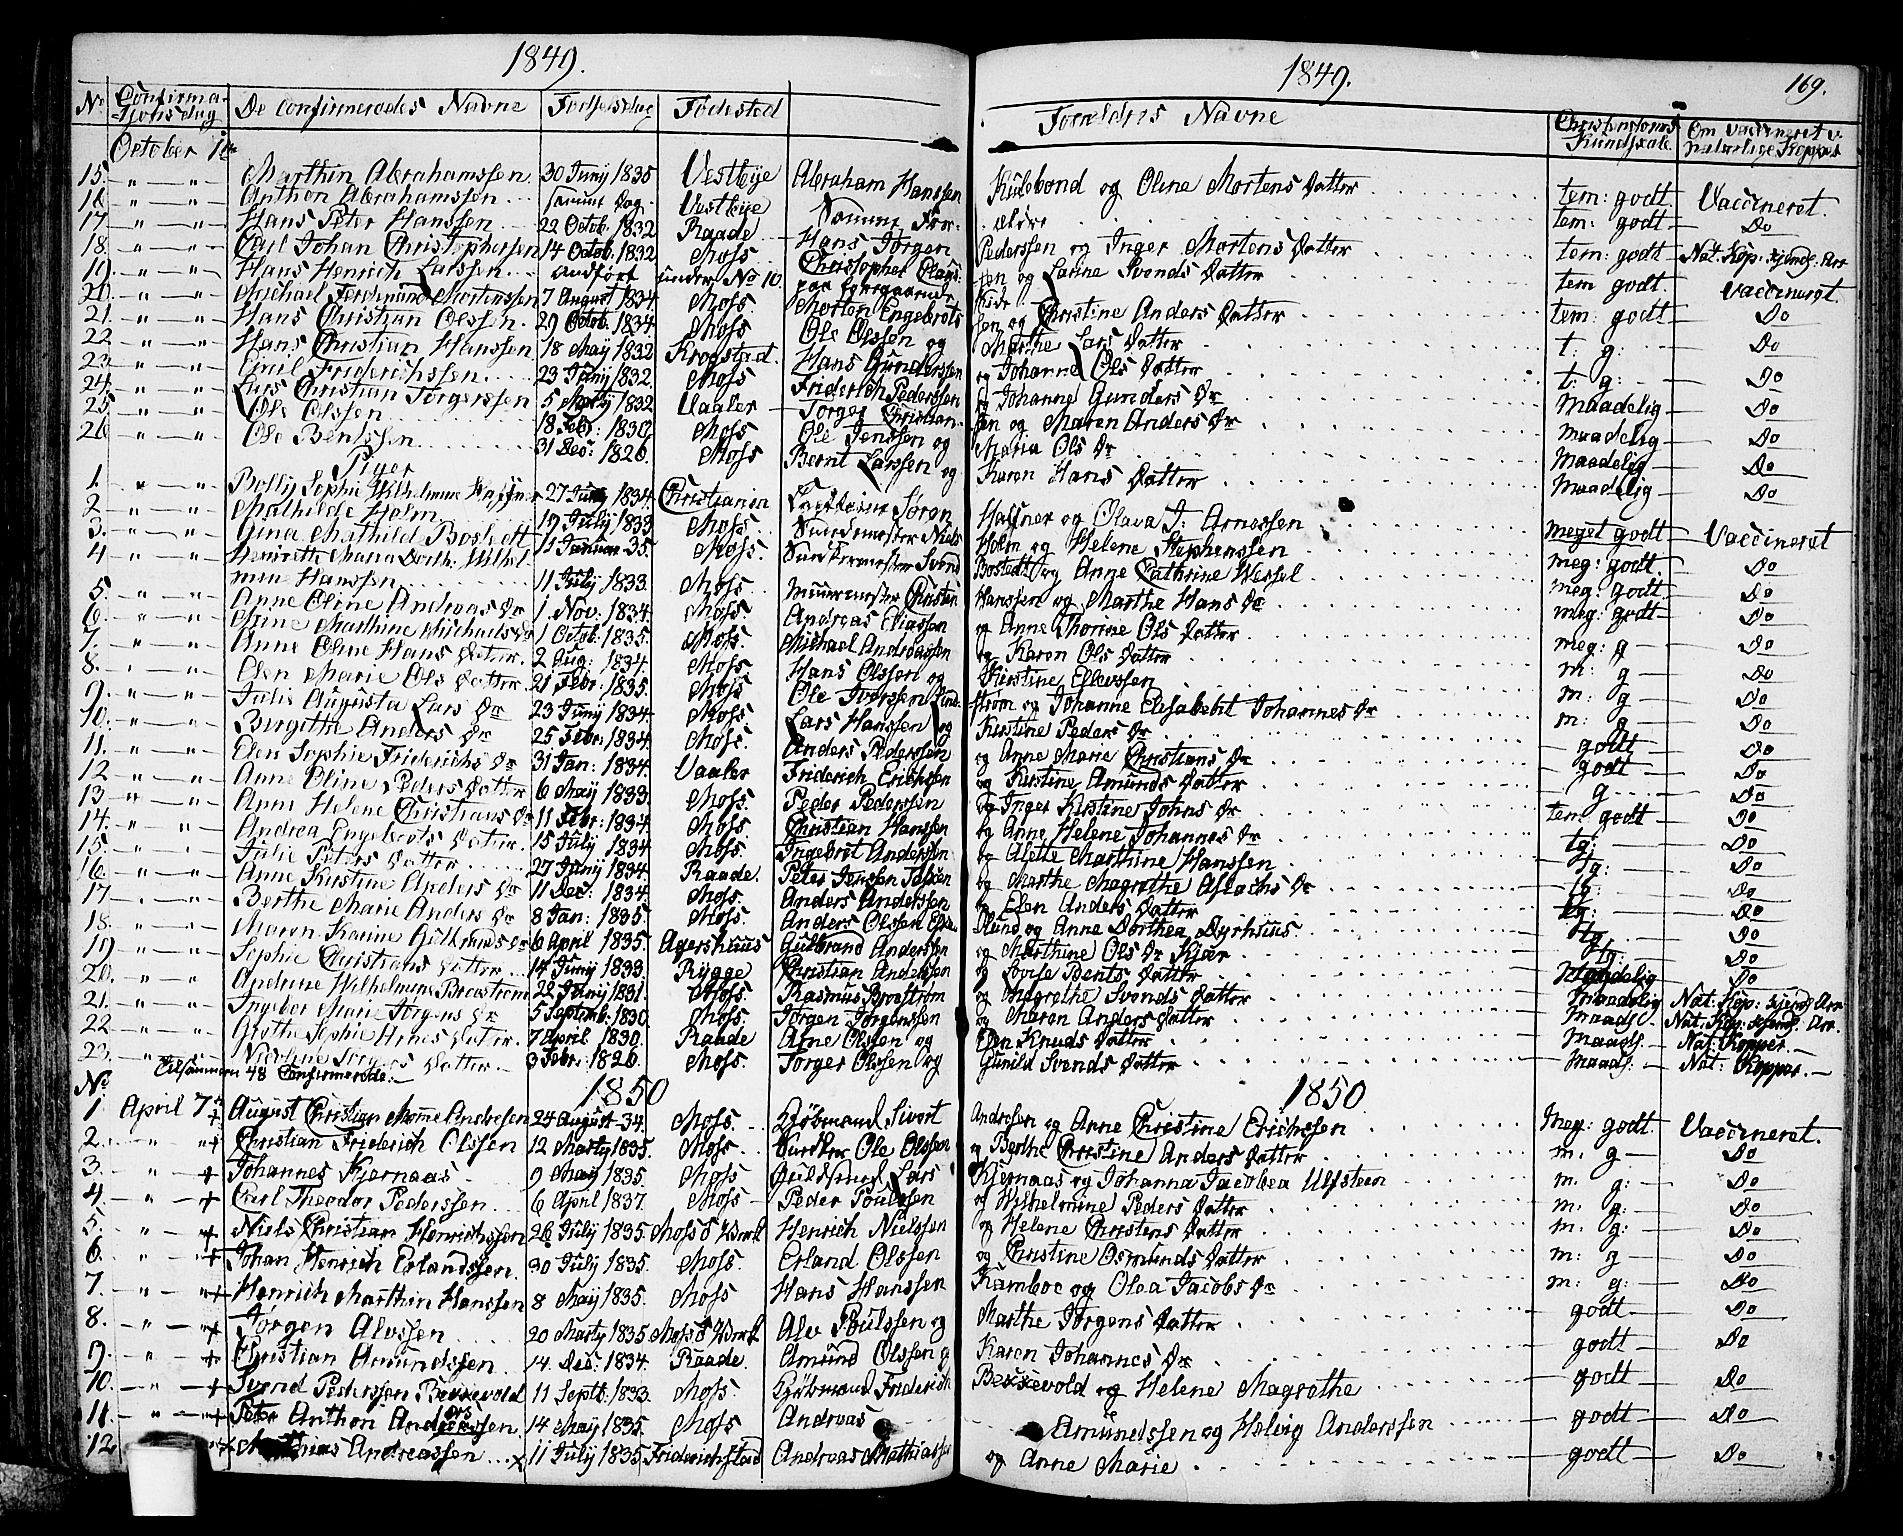 1849. 1849. 169.
No Confirma-tjons dag De Confirmeredes Navne Fødselsdag Fødested Forældres Navne Christendoms Kundskab Om Vaccineret v. naturlige Kopper
October 1ste
15. Marthin Abrahamssen 30 Juny 1835 Vestbye Abraham Hanssen Kulebond og Oline Mortens Datter tem: godt Vaccineret.
16. Anthon Abrahamssen samme Dag Vestbye Samme Forældre tem: godt Do
17. Hans Peter Hanssen 22 Octob. 1832 Raade Hans Jørgen Pederssen og Inger Mortens Datter tem: godt Nat: Kop: kjend: Arr
18. Carl Johan Christophersen 14 Octob. 1832 Moss Christopher Clausen og Larine Svends Datter tem godt Vaccineret.
19. Hans Henrich Larssen anført under No 10. paa foregaaende Side
20. Michael Ferdinand Mortenssen 7 August 1834 Moss Morten Engebretssen og Christine Anders Datter tem: godt Do
21. Hans Christian Olssen 29 Octob. 1834 Moss Ole Olssen og Marthe Lars Datter t: g: Do
22. Hans Christian Hanssen 18 May 1832 Krogstad Hans Gunderssen og Johanne Ols Datter t: g: Do
23. Emil Friderichssen 23 Juny 1832 Moss Friderich Pederssen og Johanne Gunders Dr Maadelig Do
24. Lars Christian Jørgerssen 5 Marty 1832 Vaaler Jørger Christiansen og Maren Anders Dr maadelig Do
25. Ole Olssen 18 Febr: 1830 Moss Ole Jenssen og Maria Ols Dr Maadelig Do
26. Ole Bentssen 31 Dec: 1826 Moss Bernt Larssen og Karen Hans Datter Maadelig Do
Piger
1. Bolly Sophie Wilhelmine 27 Juny 1834 Christiania Søren Hassner og Olava J: Arnessen meget godt Vaccineret
2. Mathilde Holm 19 July 1833 Moss Niels Holm og Helene Stephenssen meg: godt Do
3. Gina Mathild Bostedt 11 Januar 35. Moss Svend Bostedt og Anne Cathrine Wessel meg: godt Do
4. Henriette Maria Dorth: Wilhelmine Hanssen 11 July 1833 Moss Muurmester Christian Hanssen og Marthe Hans Dr meg: godt Do
5. Anne Oline Andreas Dr 1. Nov. 1834. Moss Andreas Eliassen og Anne Thorine Ols Datter meg: g Do
6. Marthine Michaels Dr 1 Octob. 1835. Moss Michael Andreassen og Karen Ols Datter m: g Do
7. Anne Oline Hans Datter 2 Aug: 1834. Moss Hans Olssen og Kirstine Ellevssen m: g Do
8. Elen Marie Ols Datter 21 Febr: 1835. Moss Ole Iverssen Lindstrøm og Johanne Elisabeht Johannes Dr m: g Do
9. Julie Augusta Lars Dr 23 Juny 1834 Moss Lars Hanssen og Kirstine Peders Dr godt Do
10. Birgitte Anders Dr 25 Febr: 1834. Moss Anders Pederssen og Anne Marie Christians Dr godt Do
11. Elen Sophie Friderichs Dr 31 Jan: 1834. Vaaler Friderich Erichsen og Kirstine Amunds Datter g Do
12. Anne Oline Peders Datter 6 May 1833. Moss Peder Pederssen og Inger Kirstine Johns Dr tem godt Do
13. Anne Helene Christians Dr 11 Febr: 1834. Moss Christian Hanssen og Anne Helene Johannes Dr tg: Do
14. Andrea Engebrets Datter 15 July 1834 Moss Ingebret Andersen og Alette Marthine Hanssen tg: Do
15. Julie Peters Datter 27 Juny 1834 Raade Peter Jenssen og Marthe Magrethe Aslachs Dr tg: Do
16. Anne Kirstine Anders Dr 11 Dec: 1834. Moss Anders Anderssen og Elen Anders Datter tg: Do
17. Berthe Marie Anders Dr 8 Jan: 1835. Moss Anders Olssen og Anne Dorthea Dyrhsius tg. Do
18. Maren Karine Gulbrands Dr 6 April 1835. Agershuus Gulbrand Andersen og Marthine Ols Dr Kjær tg: Do
19. Sophie Christians Datter 14 Juny 1833. Rygge Christian Anderssen og Lovise Bents Datter Maadelig Do
20. Andrine Wilhelmine Brostrøm 28 Juny 1831. Moss Rasmus Brostrøm og Magrethe Svends Datter maadelig Nat: Kop: kjend: Arr
21. Ingebor Marie Jørgens Dr 5 Septemb. 1830. Moss Jørgen Jørgenssen og Maren Anders Datter Maadl. Nat: Kop: kjend: Arr.
22. Grethe Sophie Arnes Datter 7 April 1830. Raade Arne Olssen og Elen Knuds Datter Maadl. Nat: Kopper.
23. Nicoline Jørgers Datter 3 Febr: 1826. Moss Jørger Olssen og Gunild Svends Datter Maadl: Nat: Kopper.
Tilsammen 48 Confirmerede.
No 1850 1850
1 April 7de + August Christian Andresen 24 August 34. Moss Kjøbmand Sivert Andresen og Anne Christine Erichssen Meg: godt. Vaccineret.
2. + Christian Friderich Olssen 12 Marty 1835. Moss Ole Olssen og Berthe Christine Anders Datter m: g Do
3. + Johannes Kjernaas 9 May 1835. Moss Guldsmed Lars Kjernaas og Johanna Jacobea Ulfsteen m. g: Do
4. + Carl Theodor Pederssen 6 April 1837. Moss Peder Poulssen og Wilhelmine Peders Datter m: g: Do
5. + Niels Christian Henrichssen 26 July 1835. Moss Værk Henrich Nielssen og Helene Christens Datter m: g: Do
6. + Johan Henrich Erlandssen 30 July 1835. Moss. Erland Olssen og Christine Osmunds Datter m: g Do
7. + Henrich Marthin Hanssen 8 May 1835. Moss Hans Hanssen Kamboe og Olea Jacobs Dr m: g: Do
8. + Jørgen Alvssen 20 Marty 1835 Moss Værk Alv Poulssen og Marthe Jørgens Datter godt Do
9. + Christian Amundssen 14. Dec: 1834. Raade Amund Olssen og Karen Johannes Dr godt Do
10. + Svend Pederssen Bexxevold 11 Septb. 1833. Moss. Kjøbmand Friderich Bexxevold og Helene Magrethe godt Do
11. + Peter Anthon Andreassen 14 May 1835. Moss Andreas Amundssen og Helvig Anderssen godt Do
12. + Mathias Andreassen 11 July 1835. Friderichstad Andreas Mathiassen og Anne Marie godt Do